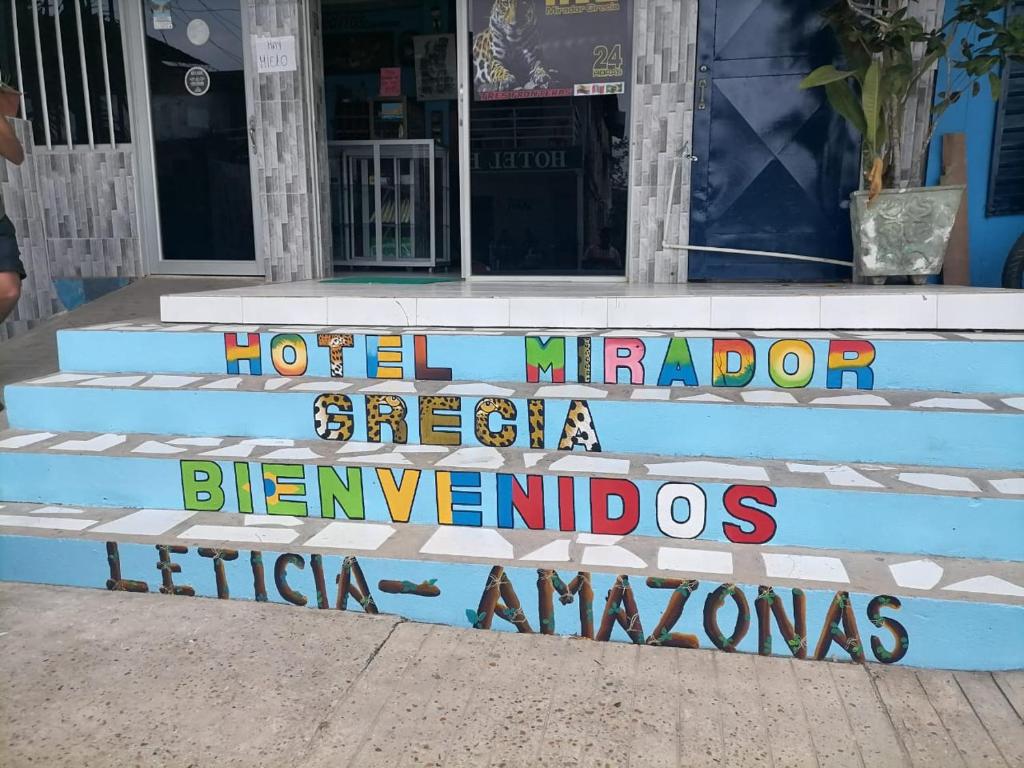 HAY
HIELO
Mirador Grecia
24
HORAS
TRES FRONTERAS
HOTEL
HOTEL MIRADOR
GRECIA
BIENVENIDOS
LETICIA - AMAZONAS